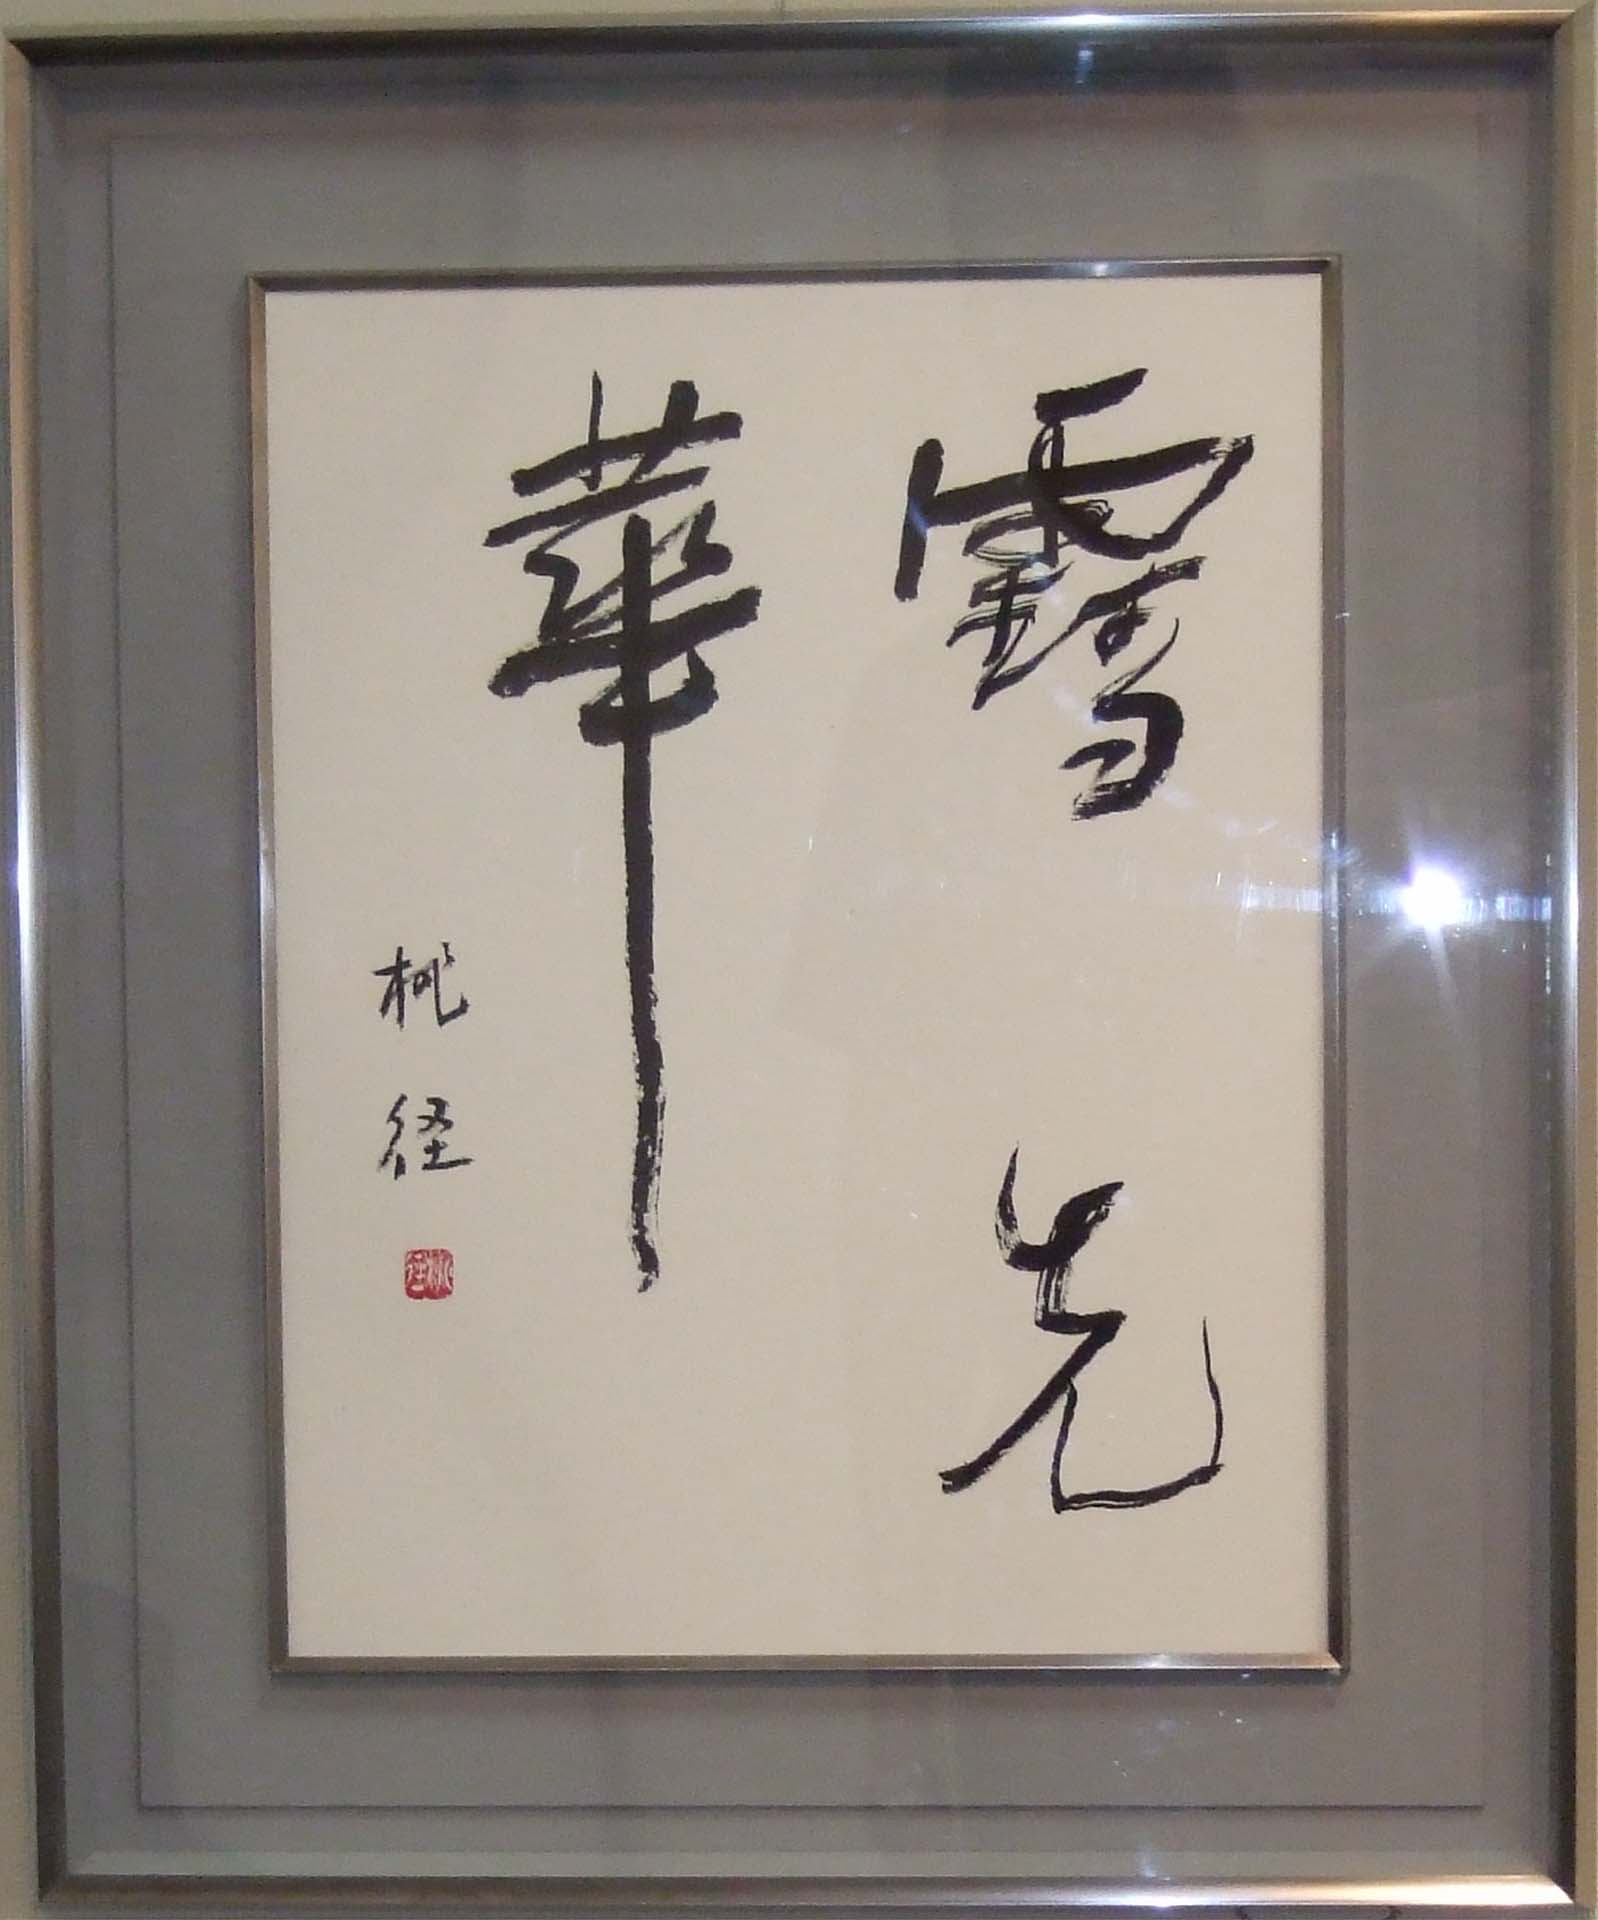 露光
華
桃径